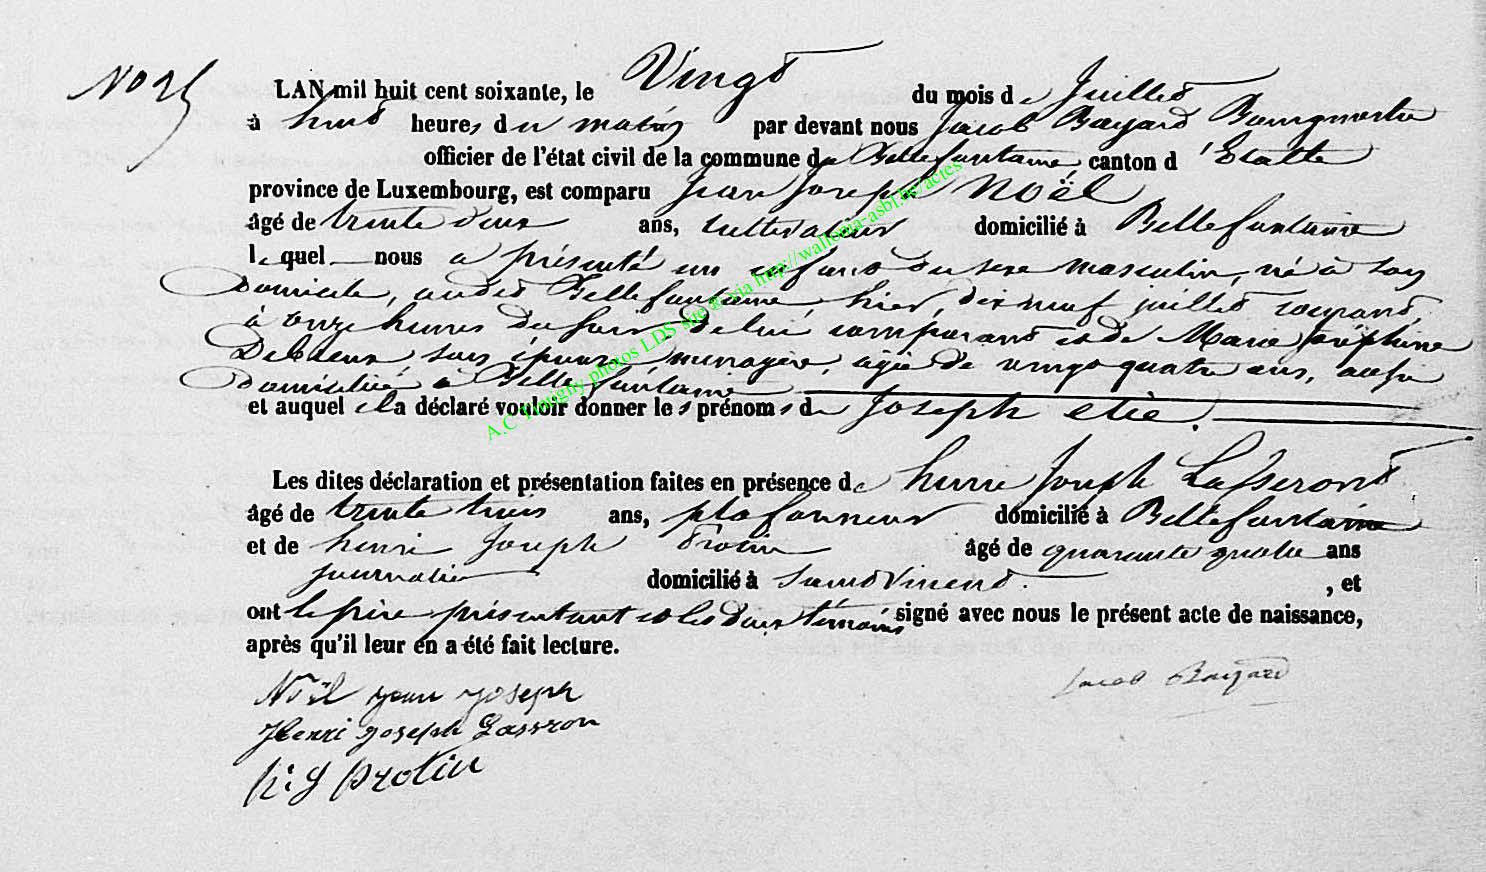 No 25
LAN mil huit cent soixante, le Vingt du mois de Juillet
à huit heures du matin par devant nous Jacob Bayard Bourgmestre
officier de l'état civil de la commune de Bellefontaine, canton d'Etalle
province de Luxembourg, est comparu Jean Joseph Noël
âgé de trente deux ans, cultivateur domicilié à Bellefontaine
lequel nous a présenté un enfant du sexe masculin, né à son
domicile, audit Bellefontaine, hier, dix neuf juillet courant,
à onze heures du soir de lui comparant et de Marie Joséphine
son épouse, ménagère, agée de vingt quatre ans, aussi
domiciliée à Bellefontaine
et auquel il a déclaré vouloir donner les prénoms de Joseph elie.
Les dites déclaration et présentation faites en présence de henri Joseph Lasseront
âgé de trente trois ans, plafonneur domicilié à Bellefontaine
et de henri Joseph Protin âgé de quarante quatre ans
journalier domicilié à Saint Vincent. , et
ont le père présentant et les deux témoins signé avec nous le présent acte de naissance,
après qu'il leur en a été fait lecture.
Noël jean joseph
Jacob Bayard
Henri joseph Lassron
h. J protin
A.C photos LDS site & via http://wallonia-asbl.be/actes